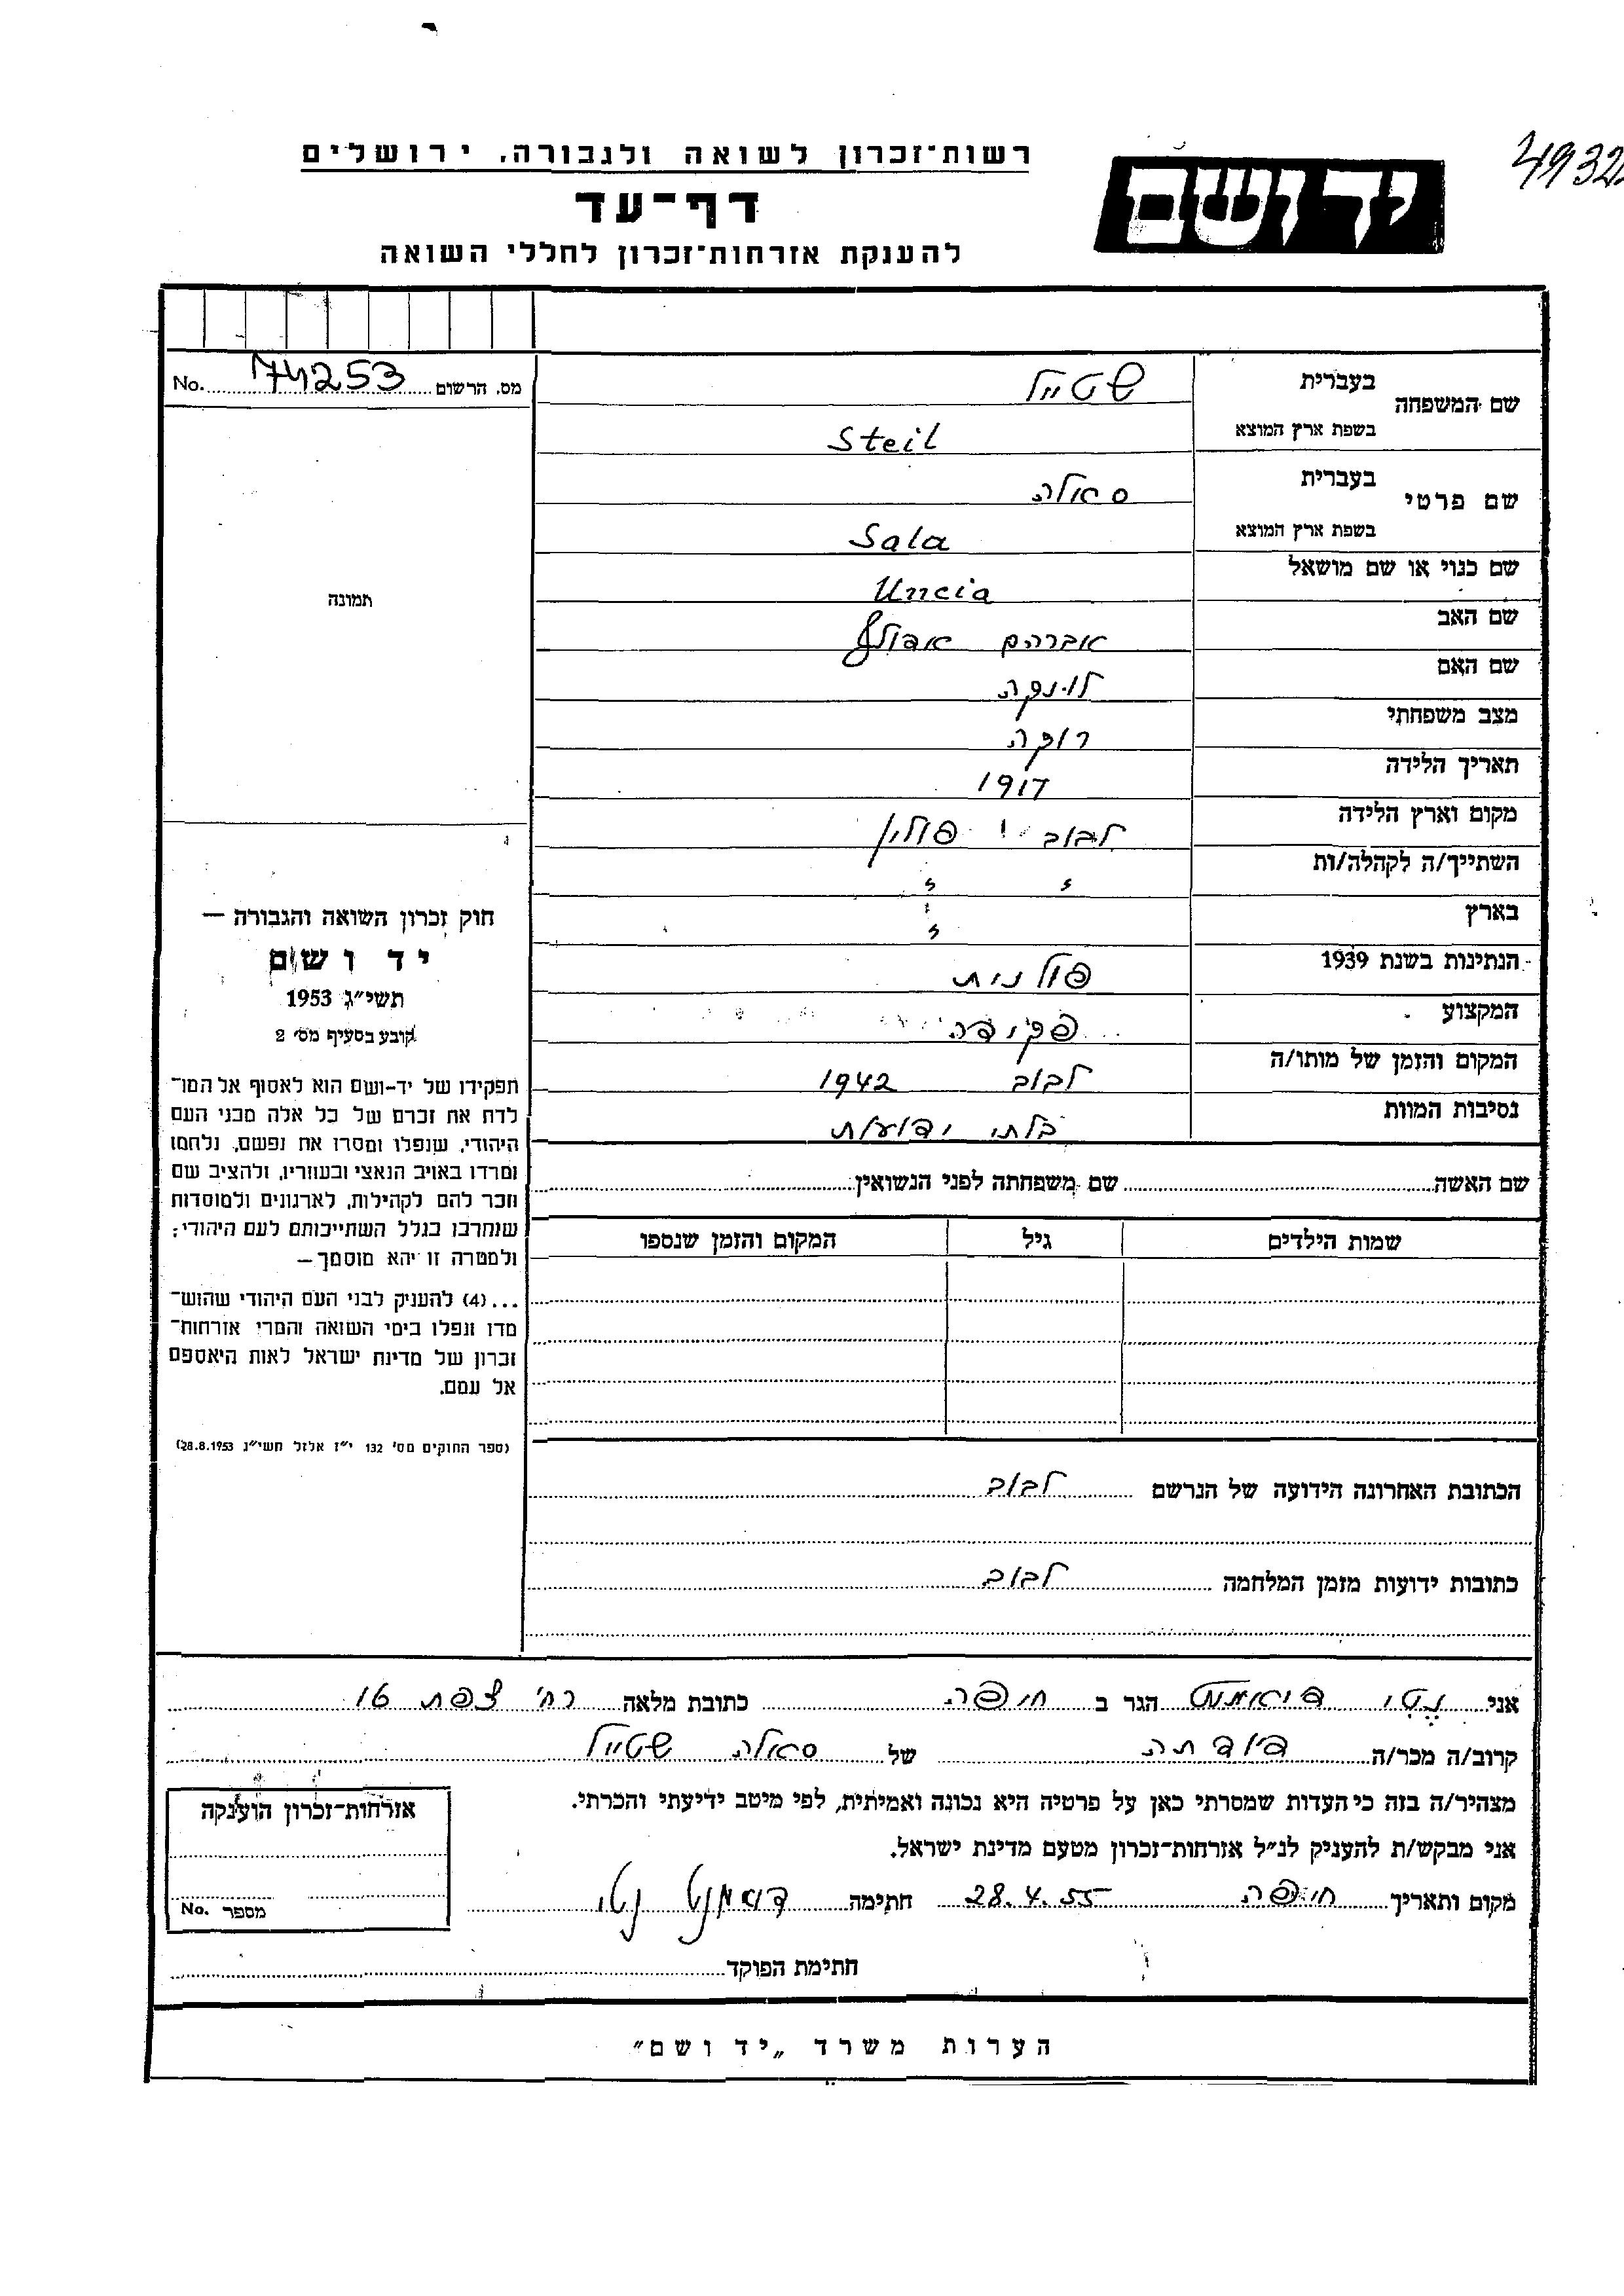 4932
רשות־זכרון לשואה ולגבורה, ירושלים
יד ושם
דף־עד
להענקת אזרחות־זכרון לחללי השואה
מס. הרשום 74253 No.
שם המשפחה
בעברית שטייל
בשפת ארץ המוצא Steil
שם פרטי
בעברית סאלה
בשפת ארץ המוצא Sala
שם כנוי או שם מושאל
שם האב אברהם אדולף
שם האם
מצב משפחתי רוקה
תאריך הלידה 1917
מקום וארץ הלידה לבוב פולין
השתייך/ה לקהלה/ות
בארץ
הנתינות בשנת 1939 פולנית
המקצוע פקידה
המקום והזמן של מותו/ה לבוב 1942
נסיבות המוות בלתי ידועות
תמונה
חוק זכרון השואה והגבורה —
יד ושם
תשי״ג 1953
קובע בסעיף מס׳ 2
תפקידו של יד-ושם הוא לאסוף אל המו־
לדת את זכרם של כל אלה מבני העם
היהודי, שנפלו ומסרו את נפשם, נלחמו
ומרדו באויב הנאצי ובעוזריו, ולהציב שם
וזכר להם לקהילות, לארגונים ולמוסדות
שנחרבו בגלל השתייכותם לעם היהודי;
ולמטרה זו יהא מוסמך—
...(4) להעניק לבני העם היהודי שהוש־
מדו ונפלו בימי השואה והמרי אזרחות־
זכרון של מדינת ישראל לאות היאספם
אל עמם.
(ספר החוקים מס׳ 132 י״ז אלול תשי״ג 28.8.1953)
שם האשה שם משפחתה לפני הנשואין
שמות הילדים גיל המקום והזמן שנספו
הכתובת האחרונה הידועה של הנרשם לבוב
כתובות ידועות מזמן המלחמה לבוב
אני נטי דיאמנט הגר ב חיפה כתובת מלאה רח׳ צפת 16
קרוב/ה מכר/ה דודתה של סאלה שטייל
מצהיר/ה בזה כי העדות שמסרתי כאן על פרטיה היא נכונה ואמיתית, לפי מיטב ידיעתי והכרתי.
אני מבקש/ת להעניק לנ״ל אזרחות־זכרון מטעם מדינת ישראל.
מקום ותאריך חיפה 28.4.55 חתימה דיאמנט נטי
אזרחות־זכרון הוענקה
מספר No.
חתימת הפוקד
הערות משרד „יד ושם״